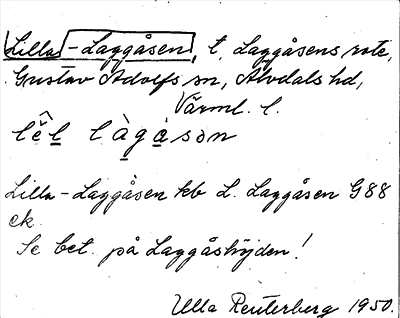 Lilla-Laggåsen, t. Laggåsens rote,
Gustav Adolfs sn, Älvdals hd,
Värml. l.
lĕ̂l làgasən
Lilla-Laggåsen kb L. Laggåsen G88
ek.
Se bet. på Laggåshöjden!
Ulla Reuterberg 1950.